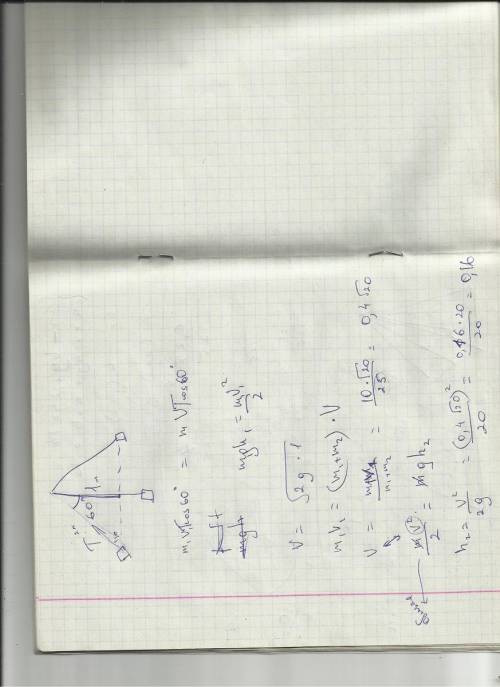 60° 1м
m₁V₁cos60° = mVcos60°
mgh₁ = mV₁²/2
V = √2g·1
m₁V₁ = (m₁+m₂)·V
V = /m₁+m₂ = 10·√20/25 = 0,4√20
m(V)²/2 = mgh₂
h₂ = V²/2g = (0,4√20)²/20 = 0,16·20/20 = 0,16